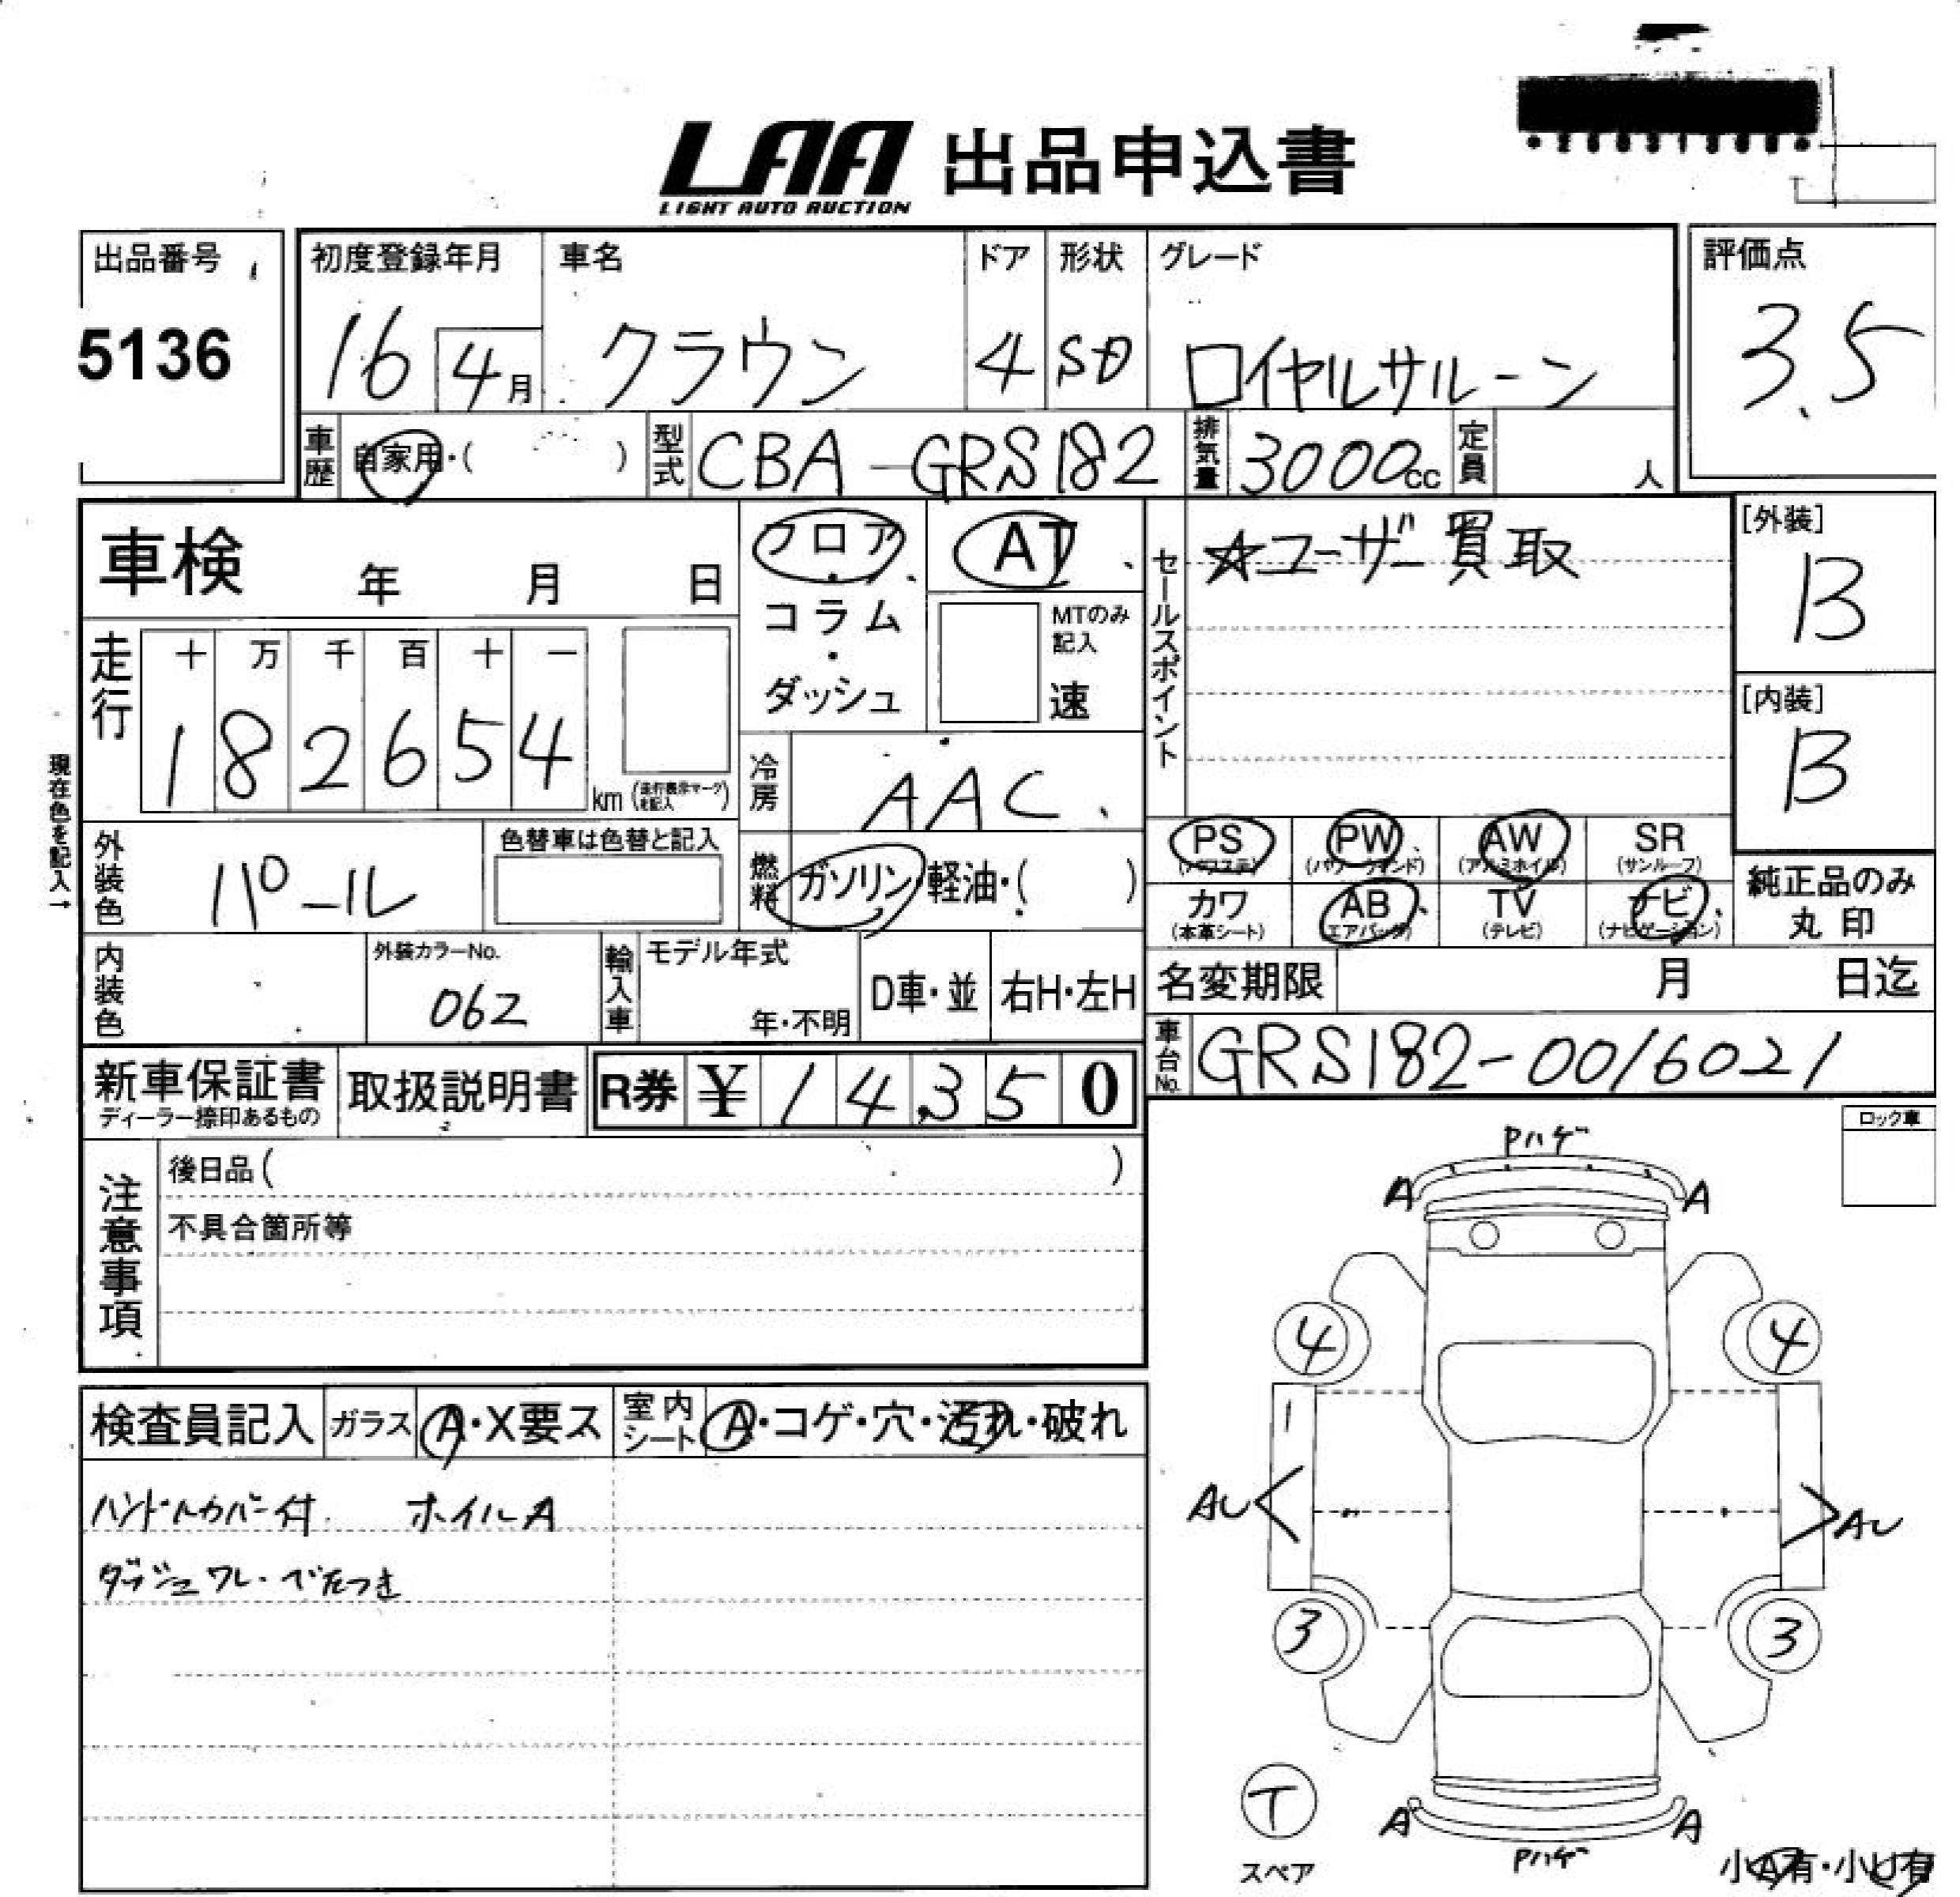 LAA 出品申込書
LIGHT AUTO AUCTION
出品番号
5136
初度登録年月
16 4月
車名
クラウン
ドア
4
形状
SD
グレード
ロイヤルサルーン
評価点
3.5
車歴 自家用・( )
型式 CBA-GRS182
排気量 3000cc
定員 人
車検 年 月 日
フロア・コラム・ダッシュ
AT
MTのみ記入
速
セールスポイント
☆ユーザー買取
[外装]
B
[内装]
B
走行
十 万 千 百 十 一
1 8 2 6 5 4 km (走行表示マークを記入)
冷房 AAC
現在色を記入→
外装色 パール
色替車は色替と記入
燃料 ガソリン・軽油・( )
PS (パワステ)
PW (パワーウインド)
AW (アルミホイル)
SR (サンルーフ)
カワ (本革シート)
AB (エアバッグ)
TV (テレビ)
ナビ (ナビゲーション)
純正品のみ
丸印
内装色
外装カラーNo.
062
輸入車
モデル年式
年・不明
D車・並
右H・左H
名変期限 月 日迄
車台No. GRS182-0016021
新車保証書
ディーラー捺印あるもの
取扱説明書
R券 ¥ 14,350
注意事項
後日品( )
不具合箇所等
ロック車
Pハゲ
A A
4 4
AU AU
3 3
T
スペア
A A
Pハゲ
小A有・小U有
検査員記入
ガラス A・X要ス
室内シート A・コゲ・穴・汚れ・破れ
ハンドルカバー付. ホイルA
ダッシュワレ・べたつき